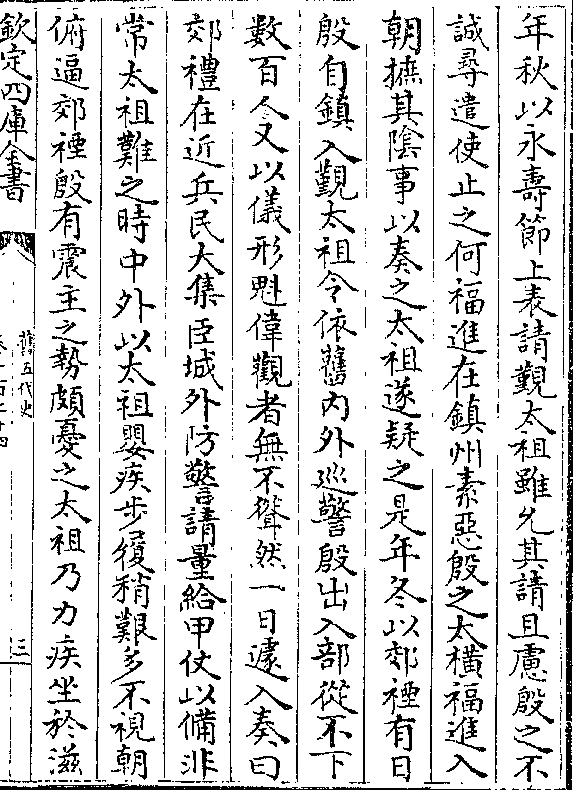 年秋以永壽節上表請覲太祖雖允其請且慮殷之不
誠尋遣使止之何福進在鎮州素惡殷之太横福進入
朝摭其陰事以奏之太祖遂疑之是年冬以郊禋有日
殷自鎮入覲太祖令依舊内外巡警殷出入部從不下
數百人又以儀形魁偉觀者無不聳然一日遽入奏曰
郊禮在近兵民大集臣城外防警請量給甲仗以備非
常太祖難之時中外以太祖嬰疾步履稍艱多不視朝
俯逼郊禋殷有震主之勢頗憂之太祖乃力疾坐於滋
欽定四庫全書
舊五代史
三